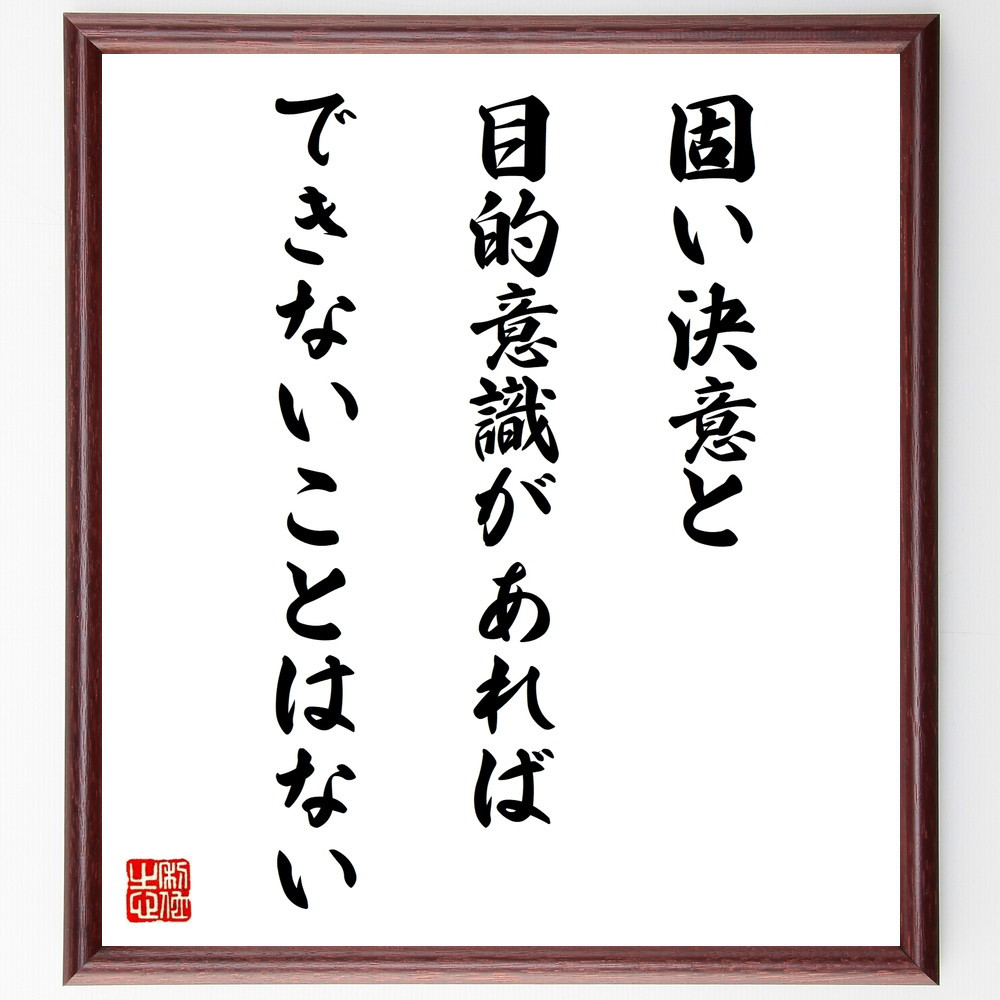 固い決意と
目的意識があれば
できないことはない